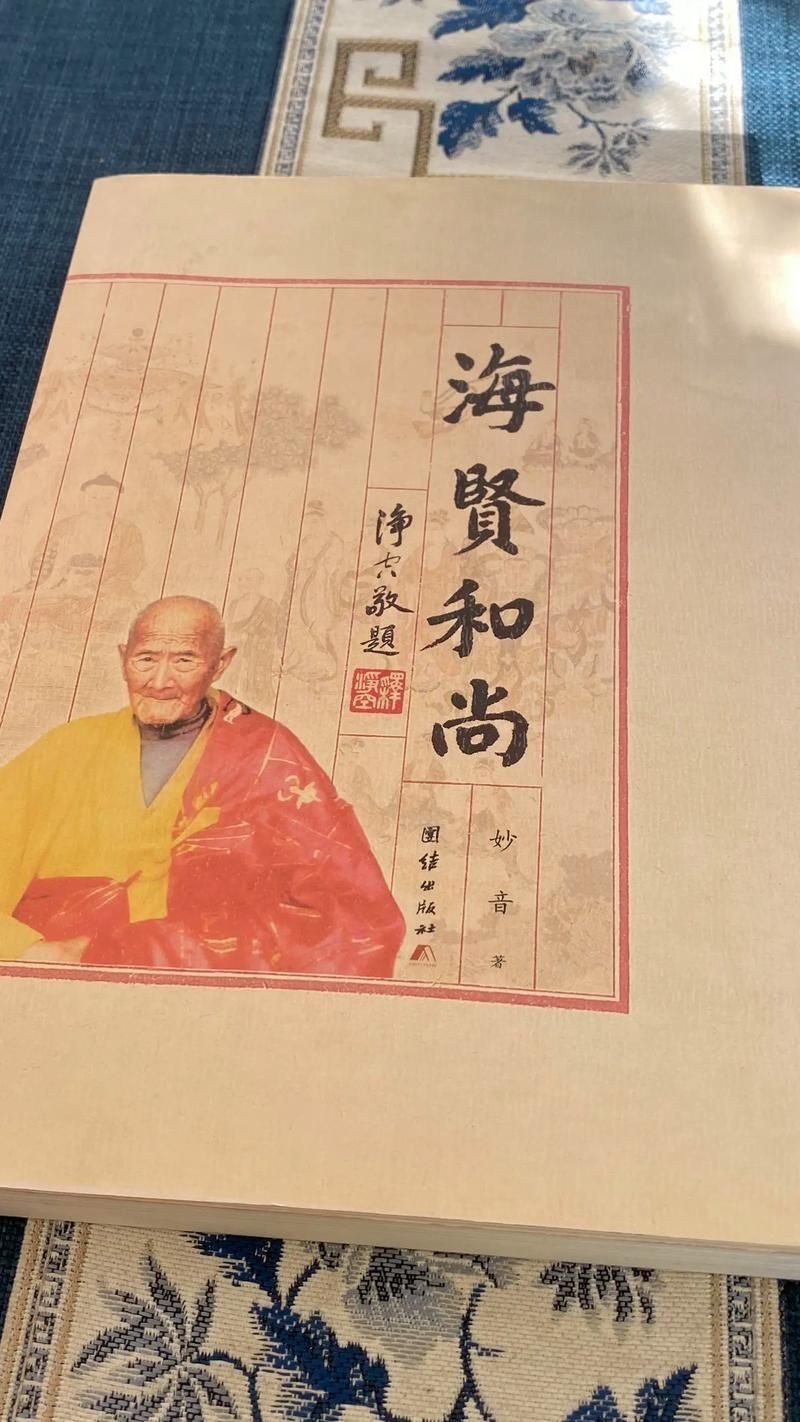 海賢和尚
淨空敬題
釋淨空
妙音 著
團结出版社